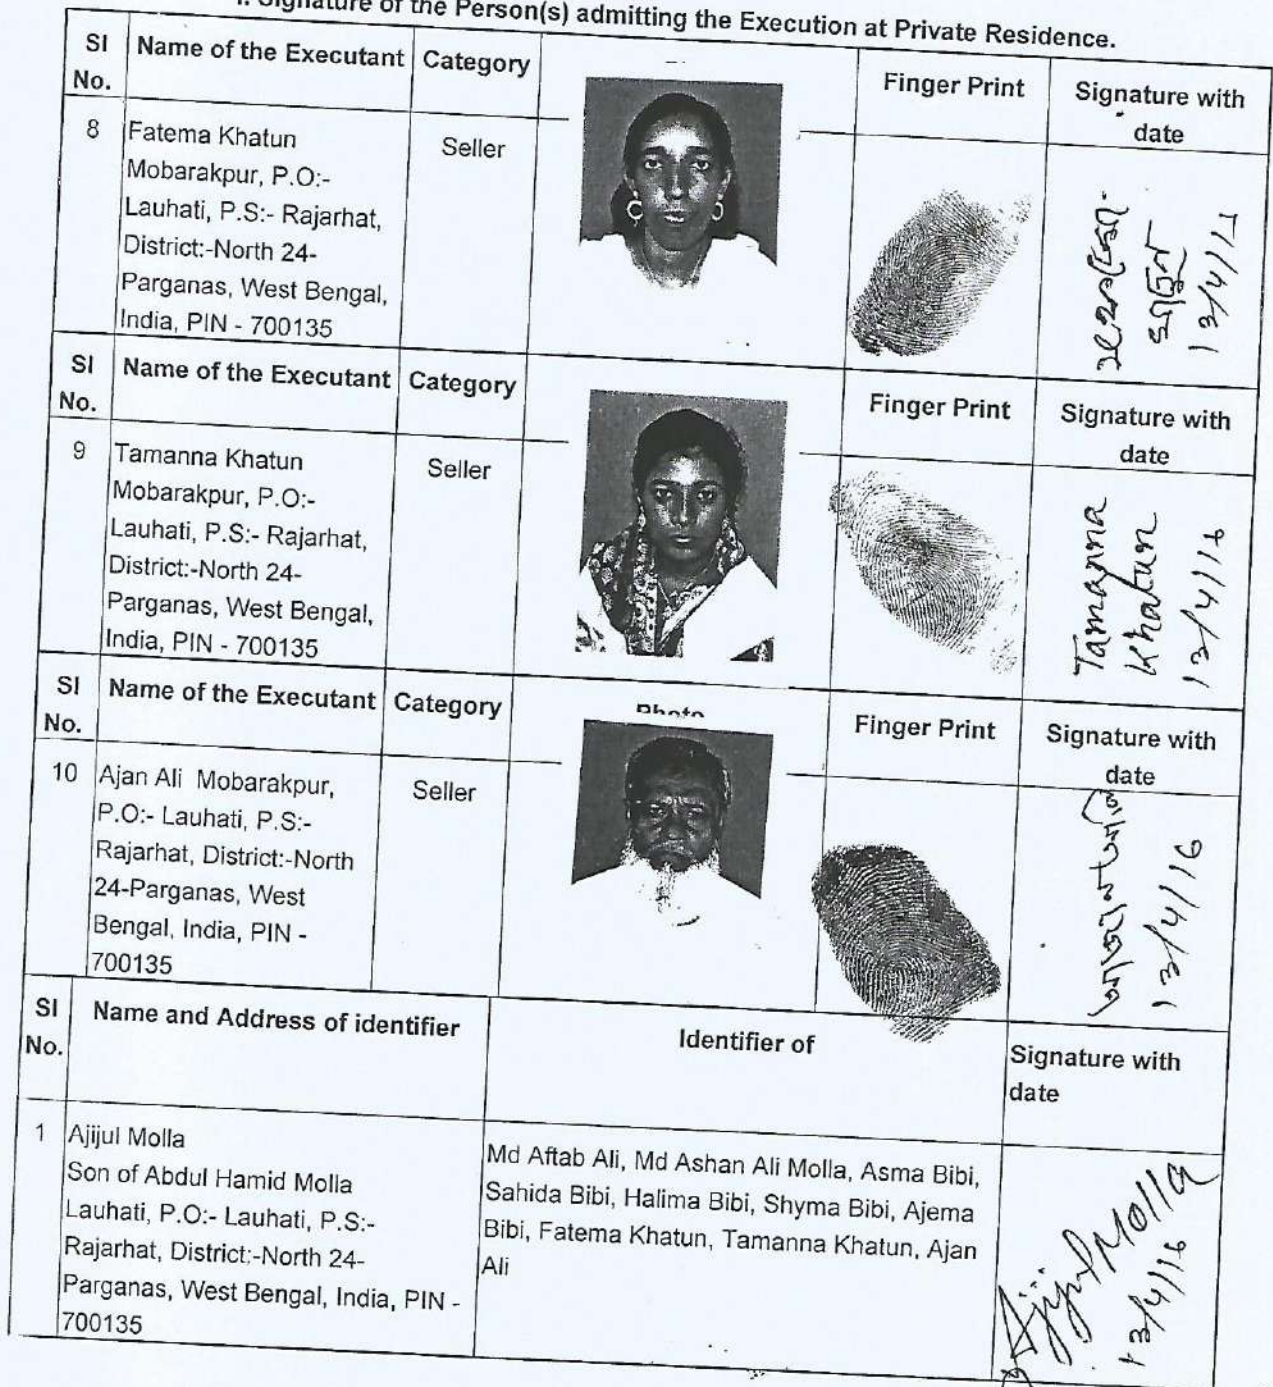 I. Signature of the Person(s) admitting the Execution at Private Residence.
Sl No. Name of the Executant Category Finger Print Signature with date
8 Fatema Khatun Seller
Mobarakpur, P.O:-
Lauhati, P.S:- Rajarhat,
District:-North 24-
Parganas, West Bengal,
India, PIN - 700135
খাতুন
Sl No. Name of the Executant Category Finger Print Signature with date
9 Tamanna Khatun Seller
Mobarakpur, P.O:-
Lauhati, P.S:- Rajarhat,
District:-North 24-
Parganas, West Bengal,
India, PIN - 700135
Tamanna
Khatun
Sl No. Name of the Executant Category Photo Finger Print Signature with date
10 Ajan Ali Mobarakpur, Seller
P.O:- Lauhati, P.S:-
Rajarhat, District:-North
24-Parganas, West
Bengal, India, PIN -
700135
13/4/16
Sl No. Name and Address of identifier Identifier of Signature with date
1 Ajijul Molla
Son of Abdul Hamid Molla
Lauhati, P.O:- Lauhati, P.S:-
Rajarhat, District:-North 24-
Parganas, West Bengal, India, PIN -
700135
Md Aftab Ali, Md Ashan Ali Molla, Asma Bibi,
Sahida Bibi, Halima Bibi, Shyma Bibi, Ajema
Bibi, Fatema Khatun, Tamanna Khatun, Ajan
Ali
Ajijul Molla
13/4/16